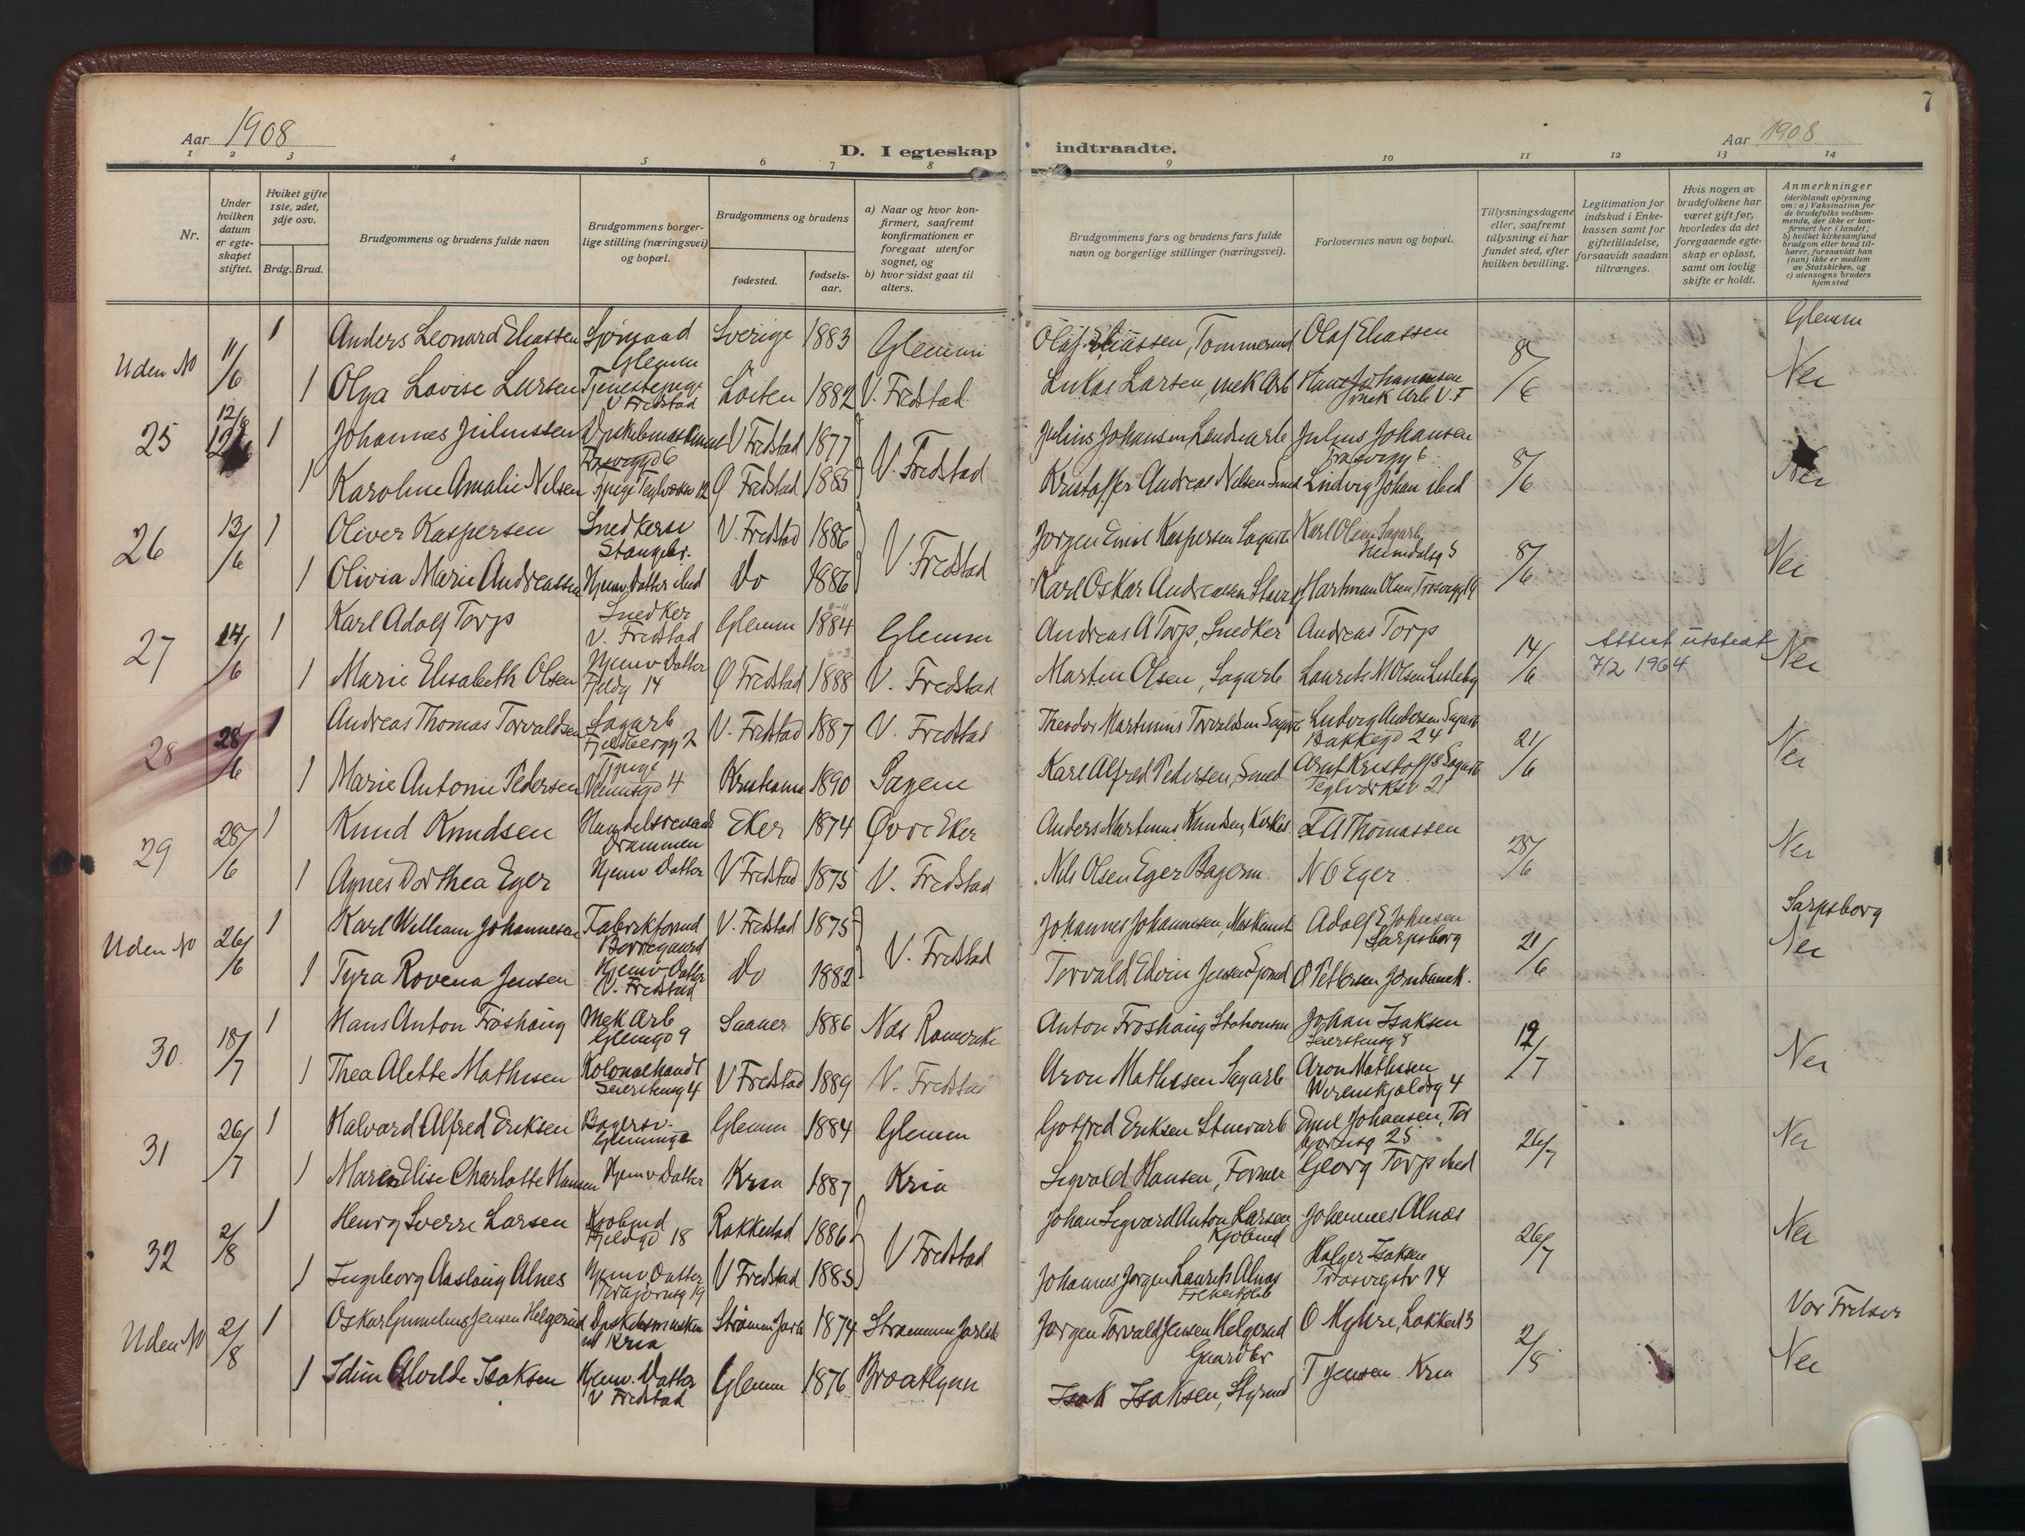 7
Aar 1908
D. I egteskap
indtraadte.
Aar 1908
1 2 3 4 5 6 7 8 9 10 11 12 13 14
Nr.
Under hvilken datum er egteskapet stiftet.
Hvilket gifte 1ste, 2det, 3dje osv.
Brdg. Brud.
Brudgommens og brudens fulde navn
Brudgommens borgerlige stilling (næringsvei) og bopæl.
Brudgommens og brudens
fødested.
fødselsaar.
a) Naar og hvor konfirmert, saafremt konfirmationen er foregaat utenfor sognet, og
b) hvor sidst gaat til alters.
Brudgommens fars og brudens fars fulde navn og borgerlige stillinger (næringsvei).
Forlovernes navn og bopæl.
Tillysningsdagene eller, saafremt tillysning ei har fundet sted, efter hvilken bevilling.
Legitimation for indskud i Enkekassen samt for giftetilladelse, forsaavidt saadan tiltrænges.
Hvis nogen av brudefolkene har været gift før, hvorledes da det foregaaende egteskap er opløst, samt om lovlig skifte er holdt.
Anmerkninger (deriblandt oplysning om: a) Vaksination for de brudefolks vedkommende, der ikke er konfirmert her i landet; b) hvilket kirkesamfund brudgom eller brud tilhører, forsaavidt han (hun) ikke er medlem av Statskirken, og c) utensogns bruders hjemsted
Glemm
Uden No 11/6 1 Anders Leonard Eliassen Sjømand Glemm Sverige 1883 Glemm Olaf Eliassen, Tommermd Olaf Eliassen 8/6 Nei
1 Olga Lovise Larsen Tjenestepige V Fredstad Loiten 1882 V. Fredstad Lukas Larsen, mek Arb Hans Johannesen mek Arb V. F
25 12/6 1 Johannes Juliussen V Fredstad 1877 V. Fredstad Julius Johansen Julius Johansen Trosvigg 6 8/6 Nei
1 Karoline Amalie Nilsen Ø Fredstad 1885 Kristoffer Andreas Nilsen Smed Ludvig Johan
26 13/6 1 Oliver Kaspersen Snedkersv Stangebr. V. Fredstad 1886 V. Fredstad Jørgen Emil Kaspersen Sagarb Karl Olsen Sagarb Heimdalsg 5 8/6 Nei
1 Olivia Marie Andreassen Hjemv Datter Do 1886 Karl Oskar Andreassen Hartman Olsen, Trosvigg 19
27 14/6 1 Karl Adolf Torp Snedker V. Fredstad Glemm 1884 Glemm Andreas A Torp, Snedker Andreas Torp 14/6 Attest utstedt 7/2 1964 Nei
1 Marie Elisabeth Olsen Hjemv Datter Fjeldg 14 Ø Fredstad 1888 V. Fredstad Martin Olsen, Sagarb Laurits M Olsen Lisleby
28 28/6 1 Andreas Thomas Torvaldsen Sagarb V. Fredstad 1887 V. Fredstad Theodor Martinius Torvaldsen Sagarb Ludvig Andersen Sagarb Bakkegd 24 21/6 Nei
1 Marie Antonie Pedersen Kristiania 1890 Sagene Karl Alfred Pedersen, Smed Arnt Kristoffs Sagarb Teglverksv 21
29 28/6 1 Knud Knudsen Handelsreisende Drammen Eker 1874 Øvre Eker Anders Martinius Knudsen, Kirkes. T A Thomassen 28/6 Nei
1 Agnes Dorthea Eger Hjemv Datter V Fredstad 1875 V. Fredstad Nils Olsen Eger Bagerm. N O Eger.
Sarpsborg
Uden No 26/6 1 Karl William Johannesen Borregaard V. Fredstad 1875 V. Fredstad Johannes Johannesen, Maskinist Adolf E Johnsen Sarpsborg 21/6 Nei
1 Tyra Rovena Jensen Hjemv Datter V. Fredstad Do 1882 Torvald Edvin Jensen Sjømd O Pettersen
30. 18/7 1 Hans Anton Froshaug Mek Arb Glemgd 9 Saaner 1886 Nds Romerike Anton Froshaug Johan Isaksen Seierstensg 8 12/7 Nei
1 Thea Alette Mathisen Kolonialhandl Seierstensg 4 V Fredstad 1889 V. Fredstad Aron Mathisen Sagarb Aron Mathisen Werenskjoldsg 4
31 26/7 1 Halvard Alfred Eriksen Bagersv. Glemm 1884 Glemm Gotfred Eriksen Stuerarb Emil Johansen, Tor 25 26/7 Nei
1 Maren Elise Charlotte Hansen Hjemv. Datter Kria 1887 Kria Sigvald Hansen, Former Georg Torp
32 2/8 1 Henry Sverre Larsen Fjeldgd 18 Rakkestad 1886 V Fredstad Johan Sigvard Anton Larsen Kjøbmd Johannes Alnæs 26/7 Nei
1 Ingeborg Aaslaug Alnes Hjemv Datter V Fredstad 1885 Johannes Jørgen Laurits Alnæs Holger Isaksen Trosvigstr 14
Vor Frelser
Uden No 2/8 1 Oskar Gunnelius Jensen Helgerud Kria 1874 Jørgen Torvald Jensen Helgerud Gaardbr O Myhre, Løkken 13 2/8 Nei
1 Idun Alvilde Isaksen Hjemv. Datter V Fredstad Glemm 1876 Isak Isaksen, Styrmd T Jensen Kria